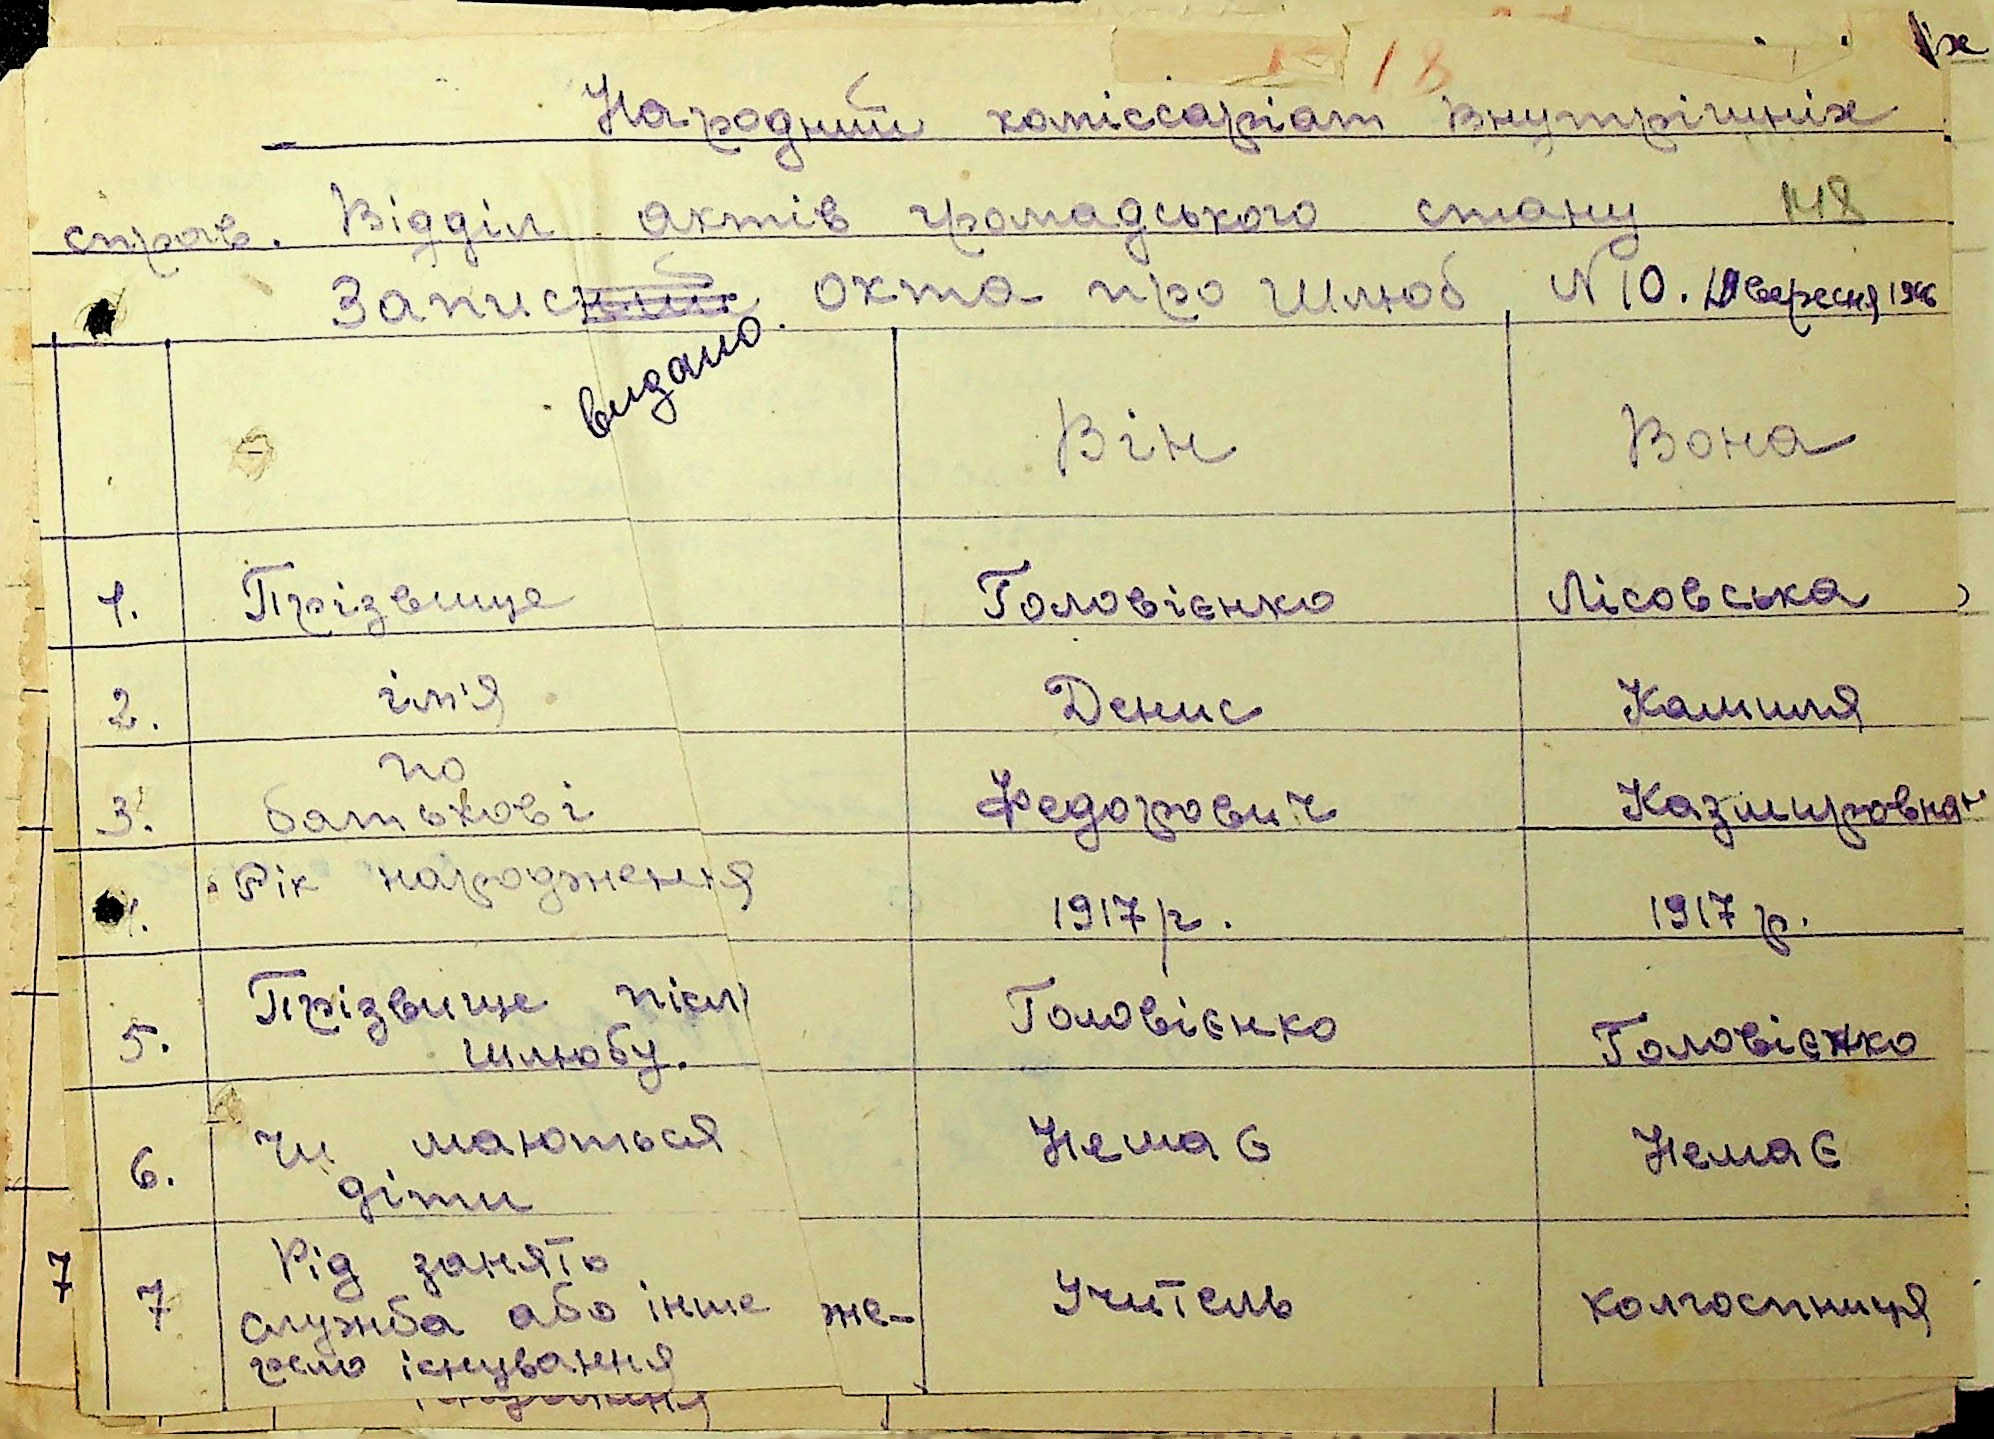 18
Народний коміссаріат внутрішніх
справ. Відділ актів громадського стану 148
Запис акта про шлюб N 10. вересня 1946
видано.
Він Вона
1. Прізвище Головієнко Лісовська
2. ім'я Денис Камиля
3. по батькові Федорович Казмировна
4. Рік народження 1917 р. 1917 р.
5. Прізвище після Головієнко Головієнко
шлюбу.
6. Чи маються Немає Немає
діти
7 7 Рід занять Учитель колгоспниця
служба або інше же-
рело існування